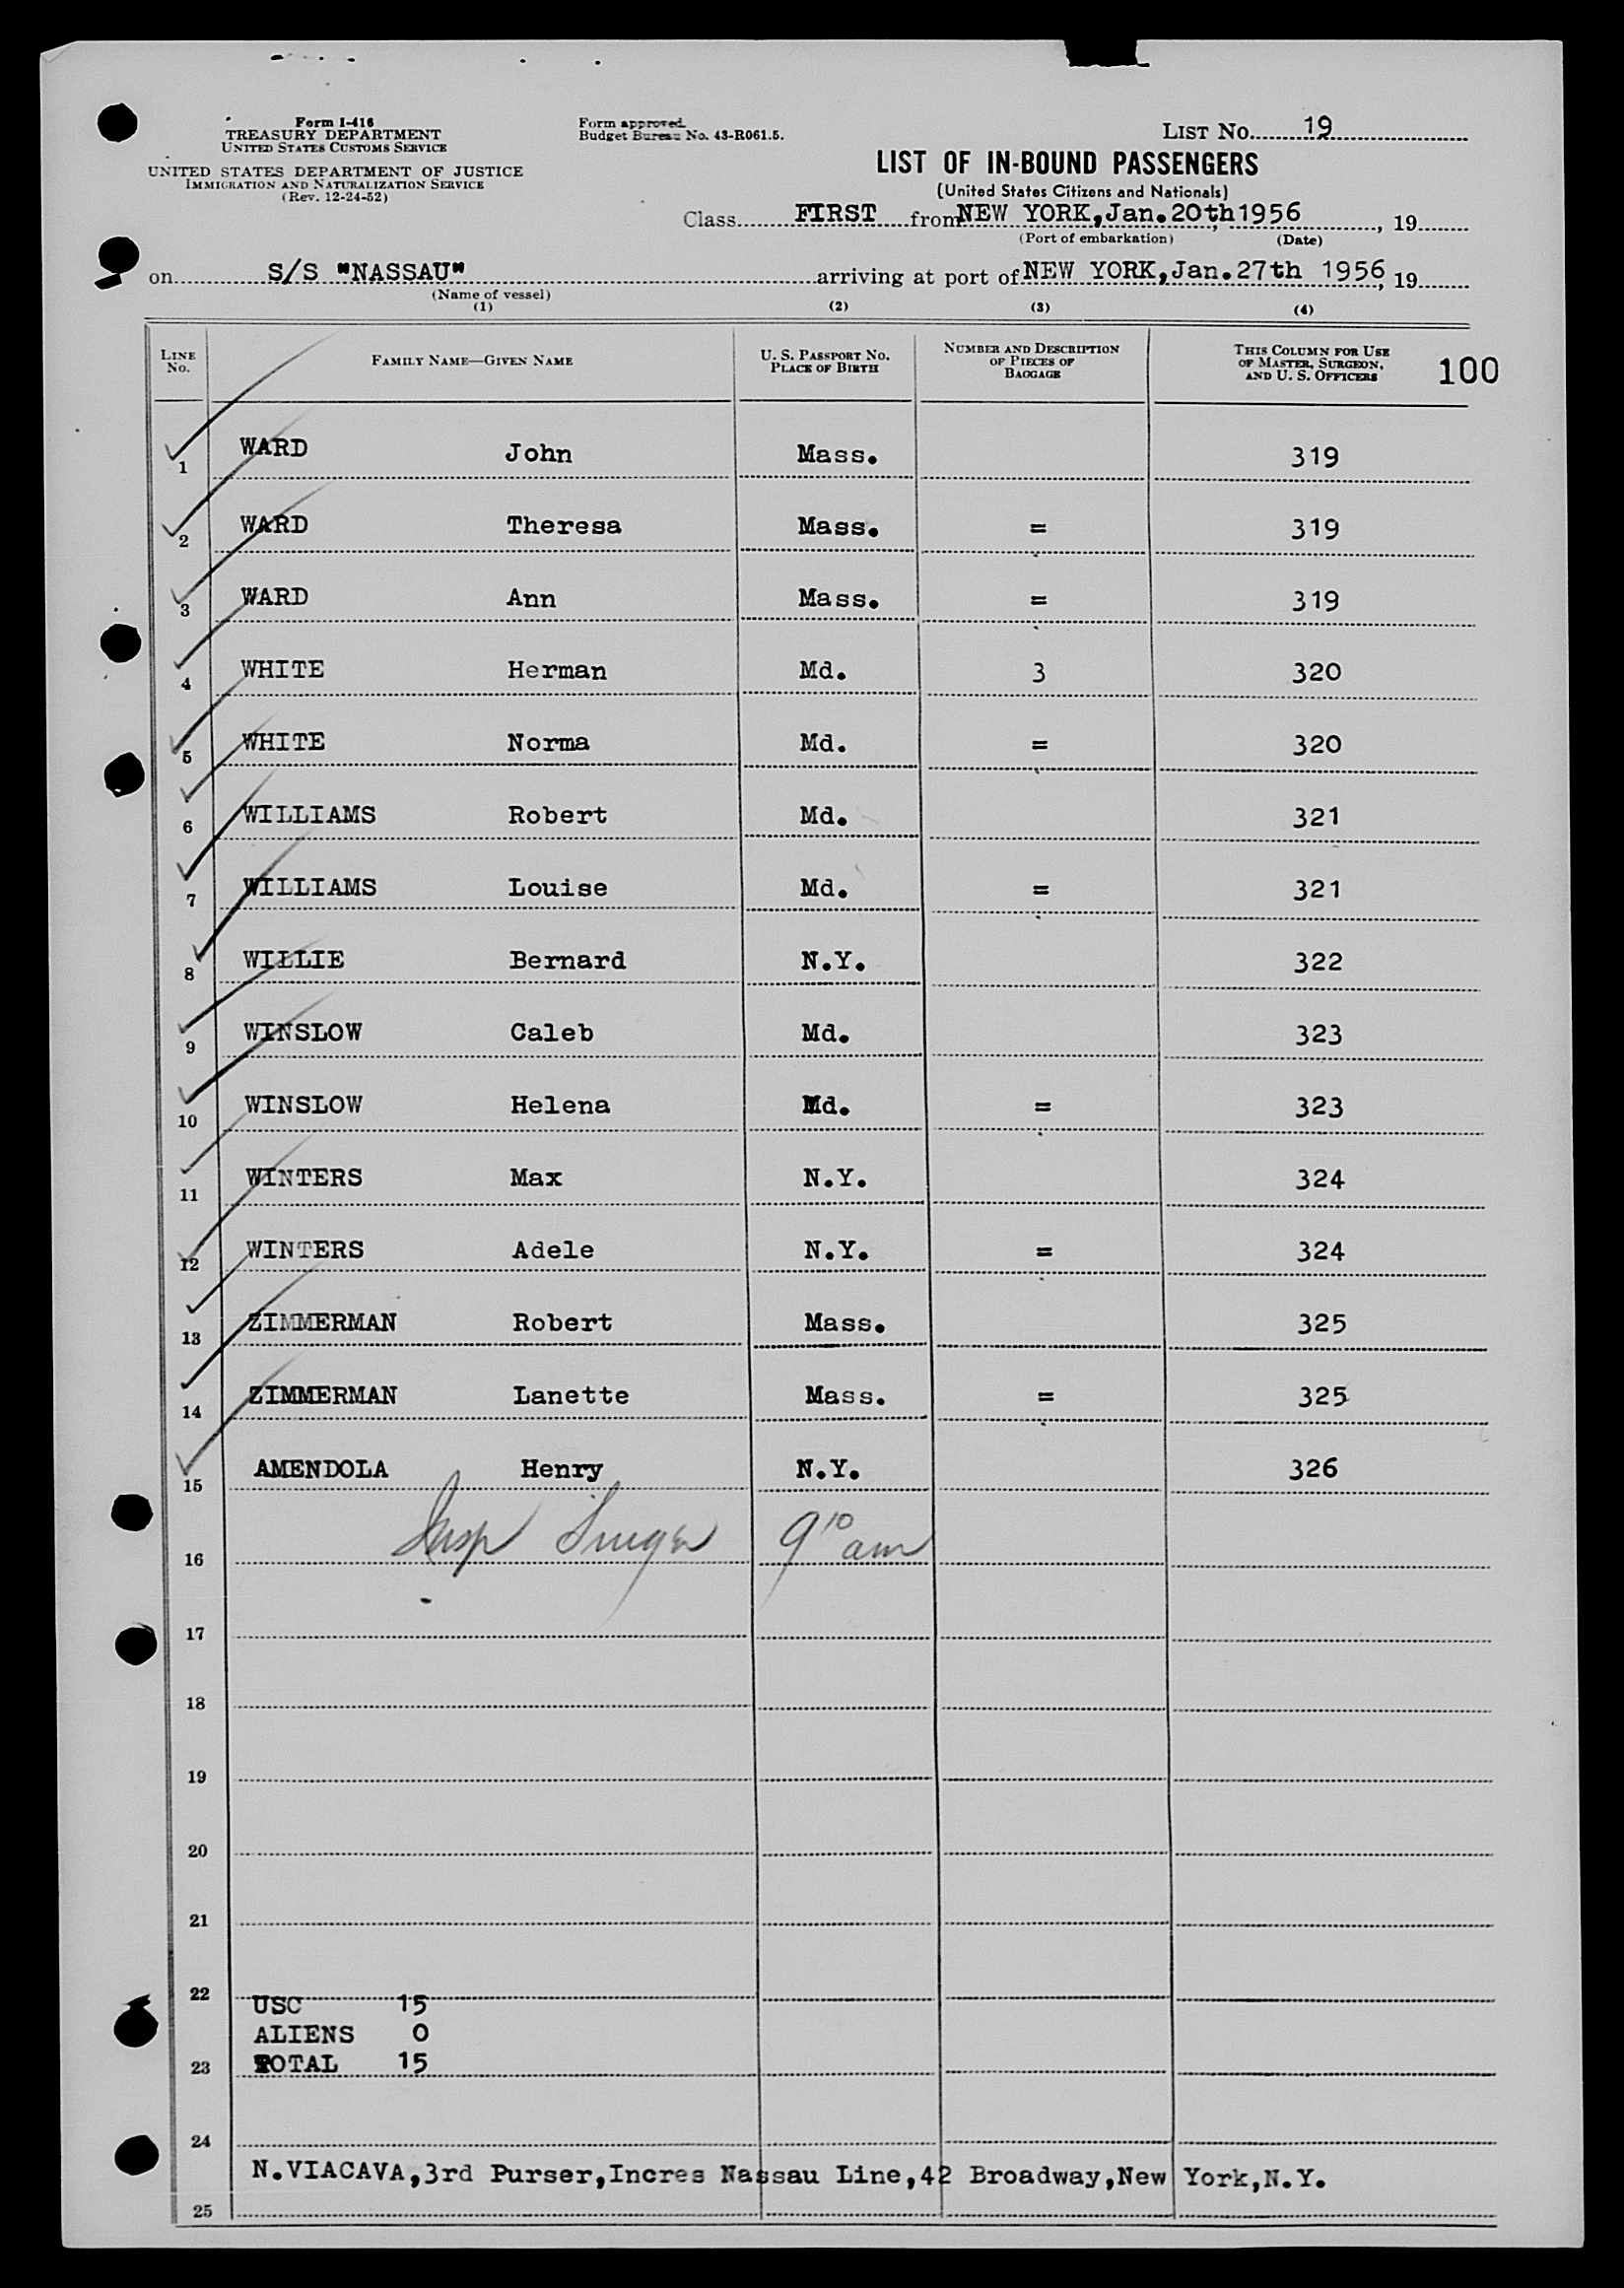 Form I-416
TREASURY DEPARTMENT
UNITED STATES CUSTOMS SERVICE
UNITED STATES DEPARTMENT OF JUSTICE
IMMIGRATION AND NATURALIZATION SERVICE
(Rev. 12-24-52)
Form approved.
Budget Bureau No. 43-R061.5.
LIST No. 19
LIST OF IN-BOUND PASSENGERS
(United States Citizens and Nationals)
Class FIRST from NEW YORK,Jan.20th1956, 19
(Port of embarkation) (Date)
on S/S "NASSAU" arriving at port of NEW YORK,Jan.27th 1956, 19
(Name of vessel)
(1) (2) (3) (4)
LINE No. FAMILY NAME—GIVEN NAME U. S. PASSPORT No. PLACE OF BIRTH NUMBER AND DESCRIPTION OF PIECES OF BAGGAGE THIS COLUMN FOR USE OF MASTER, SURGEON, AND U. S. OFFICERS 100
1 WARD John Mass. 319
2 WARD Theresa Mass. = 319
3 WARD Ann Mass. = 319
4 WHITE Herman Md. 3 320
5 WHITE Norma Md. = 320
6 WILLIAMS Robert Md. 321
7 WILLIAMS Louise Md. = 321
8 WILLIE Bernard N.Y. 322
9 WINSLOW Caleb Md. 323
10 WINSLOW Helena Md. = 323
11 WINTERS Max N.Y. 324
12 WINTERS Adele N.Y. = 324
13 ZIMMERMAN Robert Mass. 325
14 ZIMMERMAN Lanette Mass. = 325
15 AMENDOLA Henry N.Y. 326
16 Insp 9 10 am
17
18
19
20
21
22
USC 15
ALIENS 0
23 TOTAL 15
24
N.VIACAVA,3rd Purser,Incres Nassau Line,42 Broadway,New York,N.Y.
25